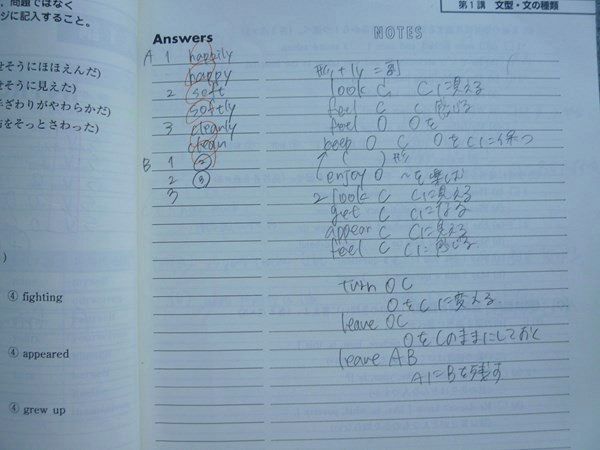 、問題ではなく
ジに記入すること。
第1講 文型・文の種類
せそうにほほえんだ)
せそうに見えた)
手ざわりがやわらかだ)
石をそっとさわった)
)
④ fighting
④ appeared
④ grew up
Answers
A 1 happily
happy
2 soft
softly
3 cleanly
clean
B 1 ②
2 ③
3
NOTES
形 + ly = 副
look C Cに見える
feel C C 感じる
feel O Oを
keep O C OをCに保つ
( ) 形
enjoy O ~を楽しむ
2 look C Cに見える
get C Cになる
appear C Cに見える
feel C Cに感じる
turn OC
OをCに変える
leave OC
OをCのままにしておく
leave AB
AにBを残す